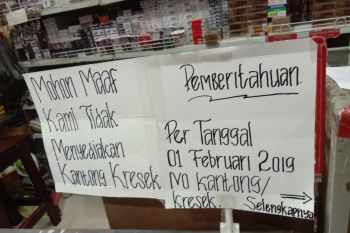 Mohon Maaf
Kami Tidak
Menyediakan
Kantong Kresek
Pemberitahuan
Per Tanggal
01 Februari 2019
NO Kantong/
kresek.
Selengkapnya